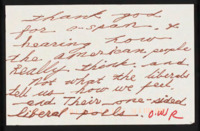 thank god
for c-span. &
hearing how
the american people
Really think. and
not what the liberals
tell us how we feel.
and Their one-sided
liberal polls. D.W.R